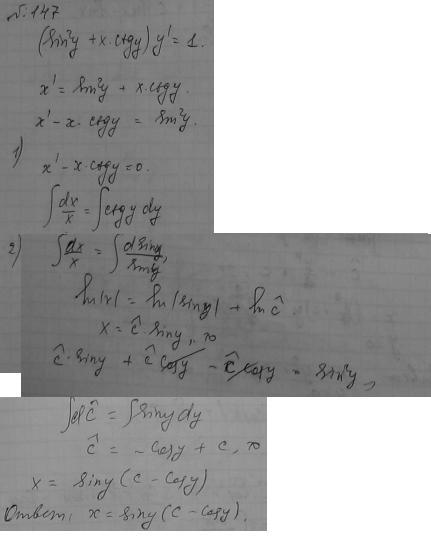 № 147
(sin²y + x·ctgy) y' = 1.
x' = sin²y + x·ctgy.
x' - x·ctgy = sin²y.
1)
x' - x·ctgy = 0.
∫ dx/x = ∫ ctgy dy
2) ∫ dx/x = ∫ dsiny/siny,
ln|x| = ln|siny| + ln ĉ.
x = ĉ·siny,
ĉ·siny + ĉ cosy - ĉ cosy = sin²y,
∫dĉ = ∫siny dy
ĉ = -cosy + c,
x = siny (c - cosy)
Ответ: x = siny (c - cosy).